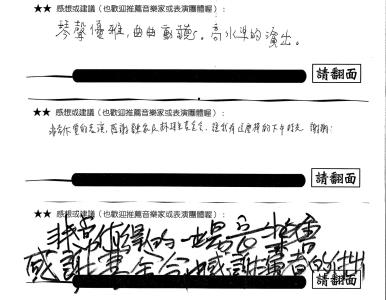 ★★ 感想或建議（也歡迎推薦音樂家或表演團體喔）：
琴聲優雅，曲曲動聽。高水準的演出。
請翻面
★★ 感想或建議（也歡迎推薦音樂家或表演團體喔）：
非常優質的表演，感謝
謝謝！
請翻面
★★ 感想或建議（也歡迎推薦音樂家或表演團體喔）：
非常精彩的一場音樂會
感謝基金會也感謝演奏者的付出
請翻面